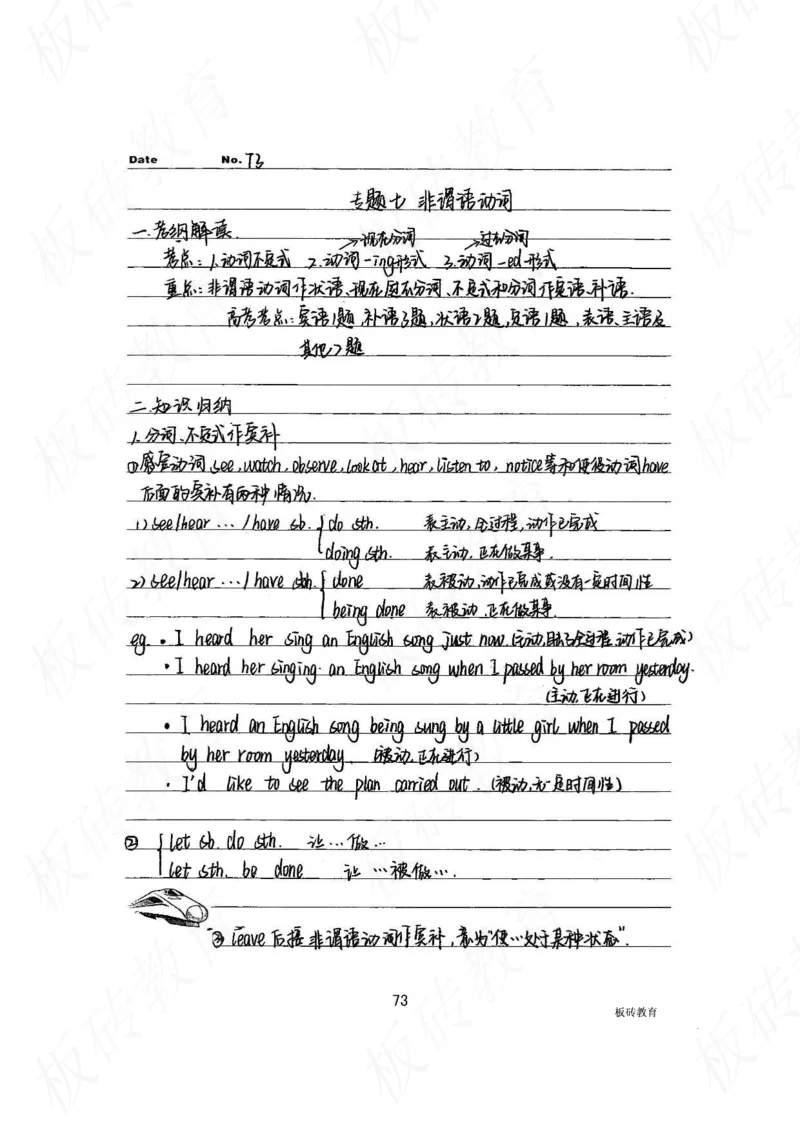 Date No. 73
专题七 非谓语动词
一.考纲解读
→现在分词 →过去分词
考点: 1.动词不定式 2.动词-ing形式 3.动词-ed形式
重点: 非谓语动词作状语、现在过去分词、不定式和分词作定语、补语.
高考考点: 宾语1题, 补语3题, 状语2题, 定语1题, 表语、主语及
其他7题
二.知识归纳
1.分词、不定式作宾补
①感官动词 see, watch, observe, look at, hear, listen to, notice等和使役动词have
后面的宾补有两种情况.
1) see/hear ... / have sb. do sth. 表主动,全过程,动作已完成
doing sth. 表主动,正在做某事.
2) see/hear ... / have sth. done 表被动,动作已完成或没有一定时间性
being done 表被动,正在做某事.
eg. • I heard her sing an English song just now. (主动,全过程,动作已完成)
• I heard her singing an English song when I passed by her room yesterday.
(主动,正在进行)
• I heard an English song being sung by a little girl when I passed
by her room yesterday. (被动,正在进行)
• I'd like to see the plan carried out. (被动,无一定时间性)
② let sb. do sth. 让...做...
let sth. be done 让...被做....
③ leave后接非谓语动词作宾补,意为"使...处于某种状态".
73
板砖教育